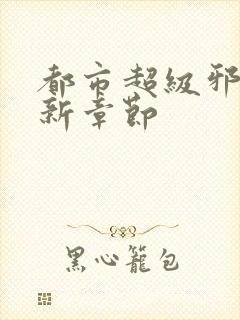 都市超级邪
新章節
黑心籠包